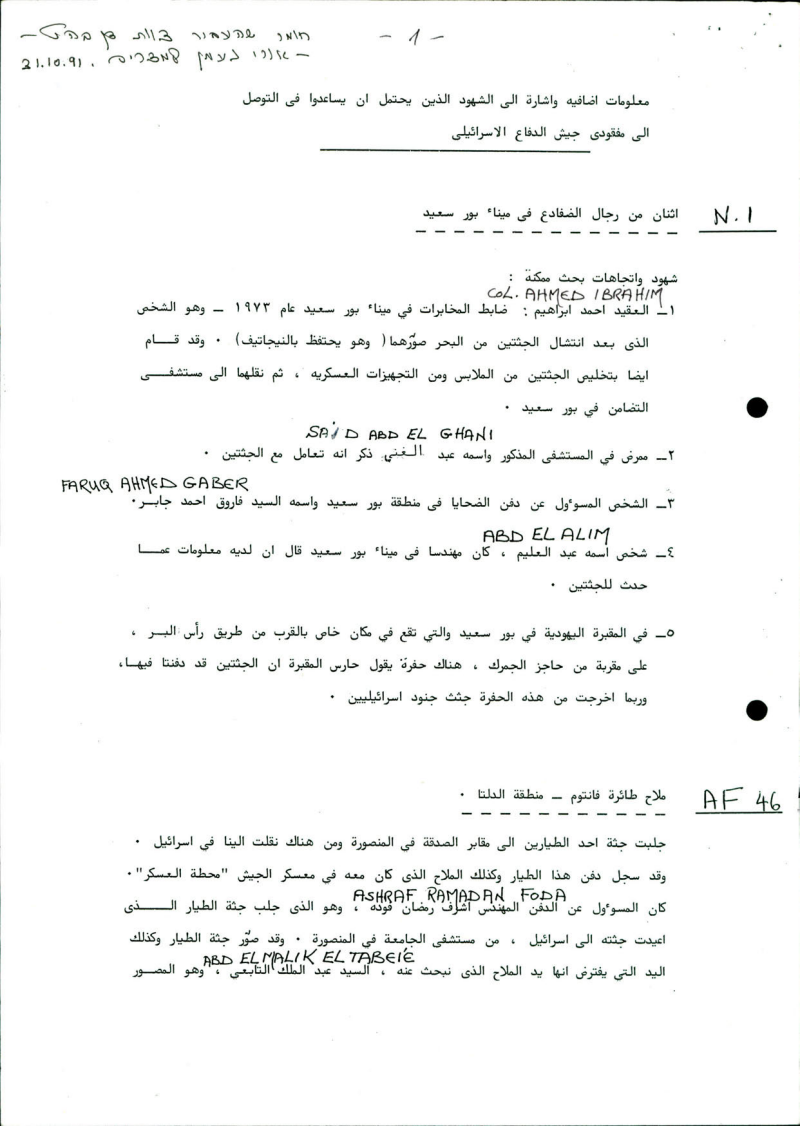 חומר שהעביר צוות
- 1 -
21.10.91
معلومات اضافيه واشارة الى الشهود الذين يحتمل ان يساعدوا فى التوصل
الى مفقودى جيش الدفاع الاسرائيلى
N.1
اثنان من رجال الضفادع فى ميناء بور سعيد
شهود واتجاهات بحث ممكنة :
COL. AHMED IBRAHIM
١ـ العقيد احمد ابراهيم : ضابط المخابرات في ميناء بور سعيد عام ١٩٧٣ ـ وهو الشخص
الذى بعد انتشال الجثتين من البحر صوّرهما( وهو يحتفظ بالنيجاتيف) ٠ وقد قـــام
ايضا بتخليص الجثتين من الملابس ومن التجهيزات العسكريه ، ثم نقلهما الى مستشفـــى
التضامن في بور سعيد ٠
SAID ABD EL GHANI
٢ـ ممرض في المستشفى المذكور واسمه عبد الغني ذكر انه تعامل مع الجثتين ٠
FARUQ AHMED GABER
٣ـ الشخص المسوءول عن دفن الضحايا في منطقة بور سعيد واسمه السيد فاروق احمد جابـر٠
ABD EL ALIM
٤ـ شخص اسمه عبد العليم ، كان مهندسا في ميناء بور سعيد قال ان لديه معلومات عمـــا
حدث للجثتين ٠
٥ـ في المقبرة اليهودية في بور سعيد والتي تقع في مكان خاص بالقرب من طريق رأس البـر ،
على مقربة من حاجز الجمرك ، هناك حفرة يقول حارس المقبرة ان الجثتين قد دفنتا فيهـا،
وربما اخرجت من هذه الحفرة جثث جنود اسرائيليين ٠
AF 46
ملاح طائرة فانتوم ـ منطقة الدلتا ٠
جلبت جثة احد الطيارين الى مقابر الصدقة في المنصورة ومن هناك نقلت الينا في اسرائيل ٠
وقد سجل دفن هذا الطيار وكذلك الملاح الذى كان معه في معسكر الجيش "محطة العسكر"٠
ASHRAF RAMADAN FODA
كان المسوءول عن الدفن المهندس اشرف رمضان فوده ، وهو الذى جلب جثة الطيار الـــذى
اعيدت جثته الى اسرائيل ، من مستشفى الجامعة في المنصورة ٠ وقد صوّر جثة الطيار وكذلك
ABD EL MALIK EL TABEIE
اليد التي يفترض انها يد الملاح الذى نبحث عنه ، السيد عبد الملك التابعى ، وهو المصور